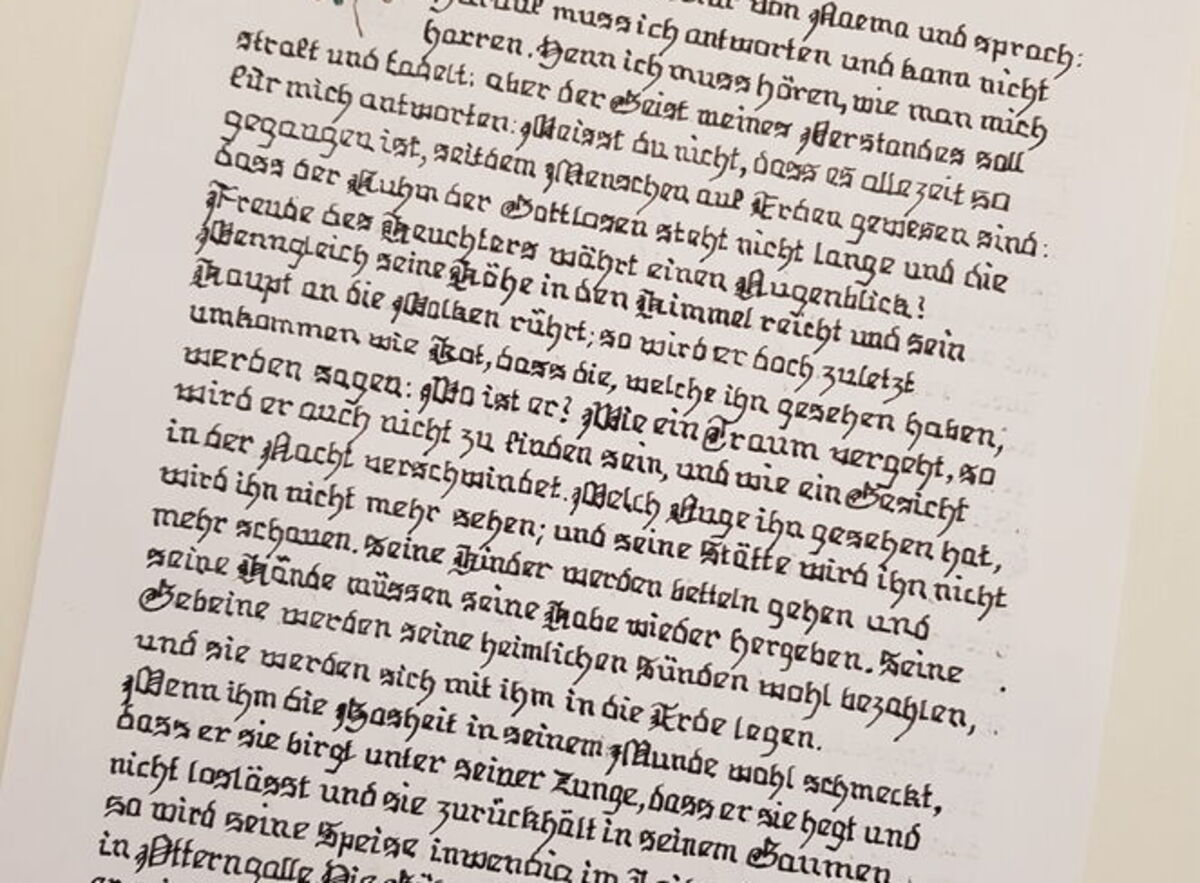 von Naema und sprach:
Darauf muss ich antworten und kann nicht
harren. Denn ich muss hören, wie man mich
straft und tadelt; aber der Geist meines Verstandes soll
für mich antworten: Weisst du nicht, dass es allezeit so
gegangen ist, seitdem Menschen auf Erden gewesen sind:
dass der Ruhm der Gottlosen steht nicht lange und die
Freude des Heuchlers währt einen Augenblick?
Wenngleich seine Höhe in den Himmel reicht und sein
Haupt an die Wolken rührt; so wird er doch zuletzt
umkommen wie Kot, dass die, welche ihn gesehen haben,
werden sagen: Wo ist er? Wie ein Traum vergeht, so
wird er auch nicht zu finden sein, und wie ein Gesicht
in der Nacht verschwindet. Welch Auge ihn gesehen hat,
wird ihn nicht mehr sehen; und seine Stätte wird ihn nicht
mehr schauen. Seine Kinder werden betteln gehen und
seine Hände müssen seine Habe wieder hergeben. Seine
Gebeine werden seine heimlichen Sünden wohl bezahlen,
und sie werden sich mit ihm in die Erde legen.
Wenn ihm die Bosheit in seinem Munde wohl schmeckt,
dass er sie birgt unter seiner Zunge, dass er sie hegt und
nicht loslässt und sie zurückhält in seinem Gaumen
so wird seine Speise inwendig im
in Otterngalle Die